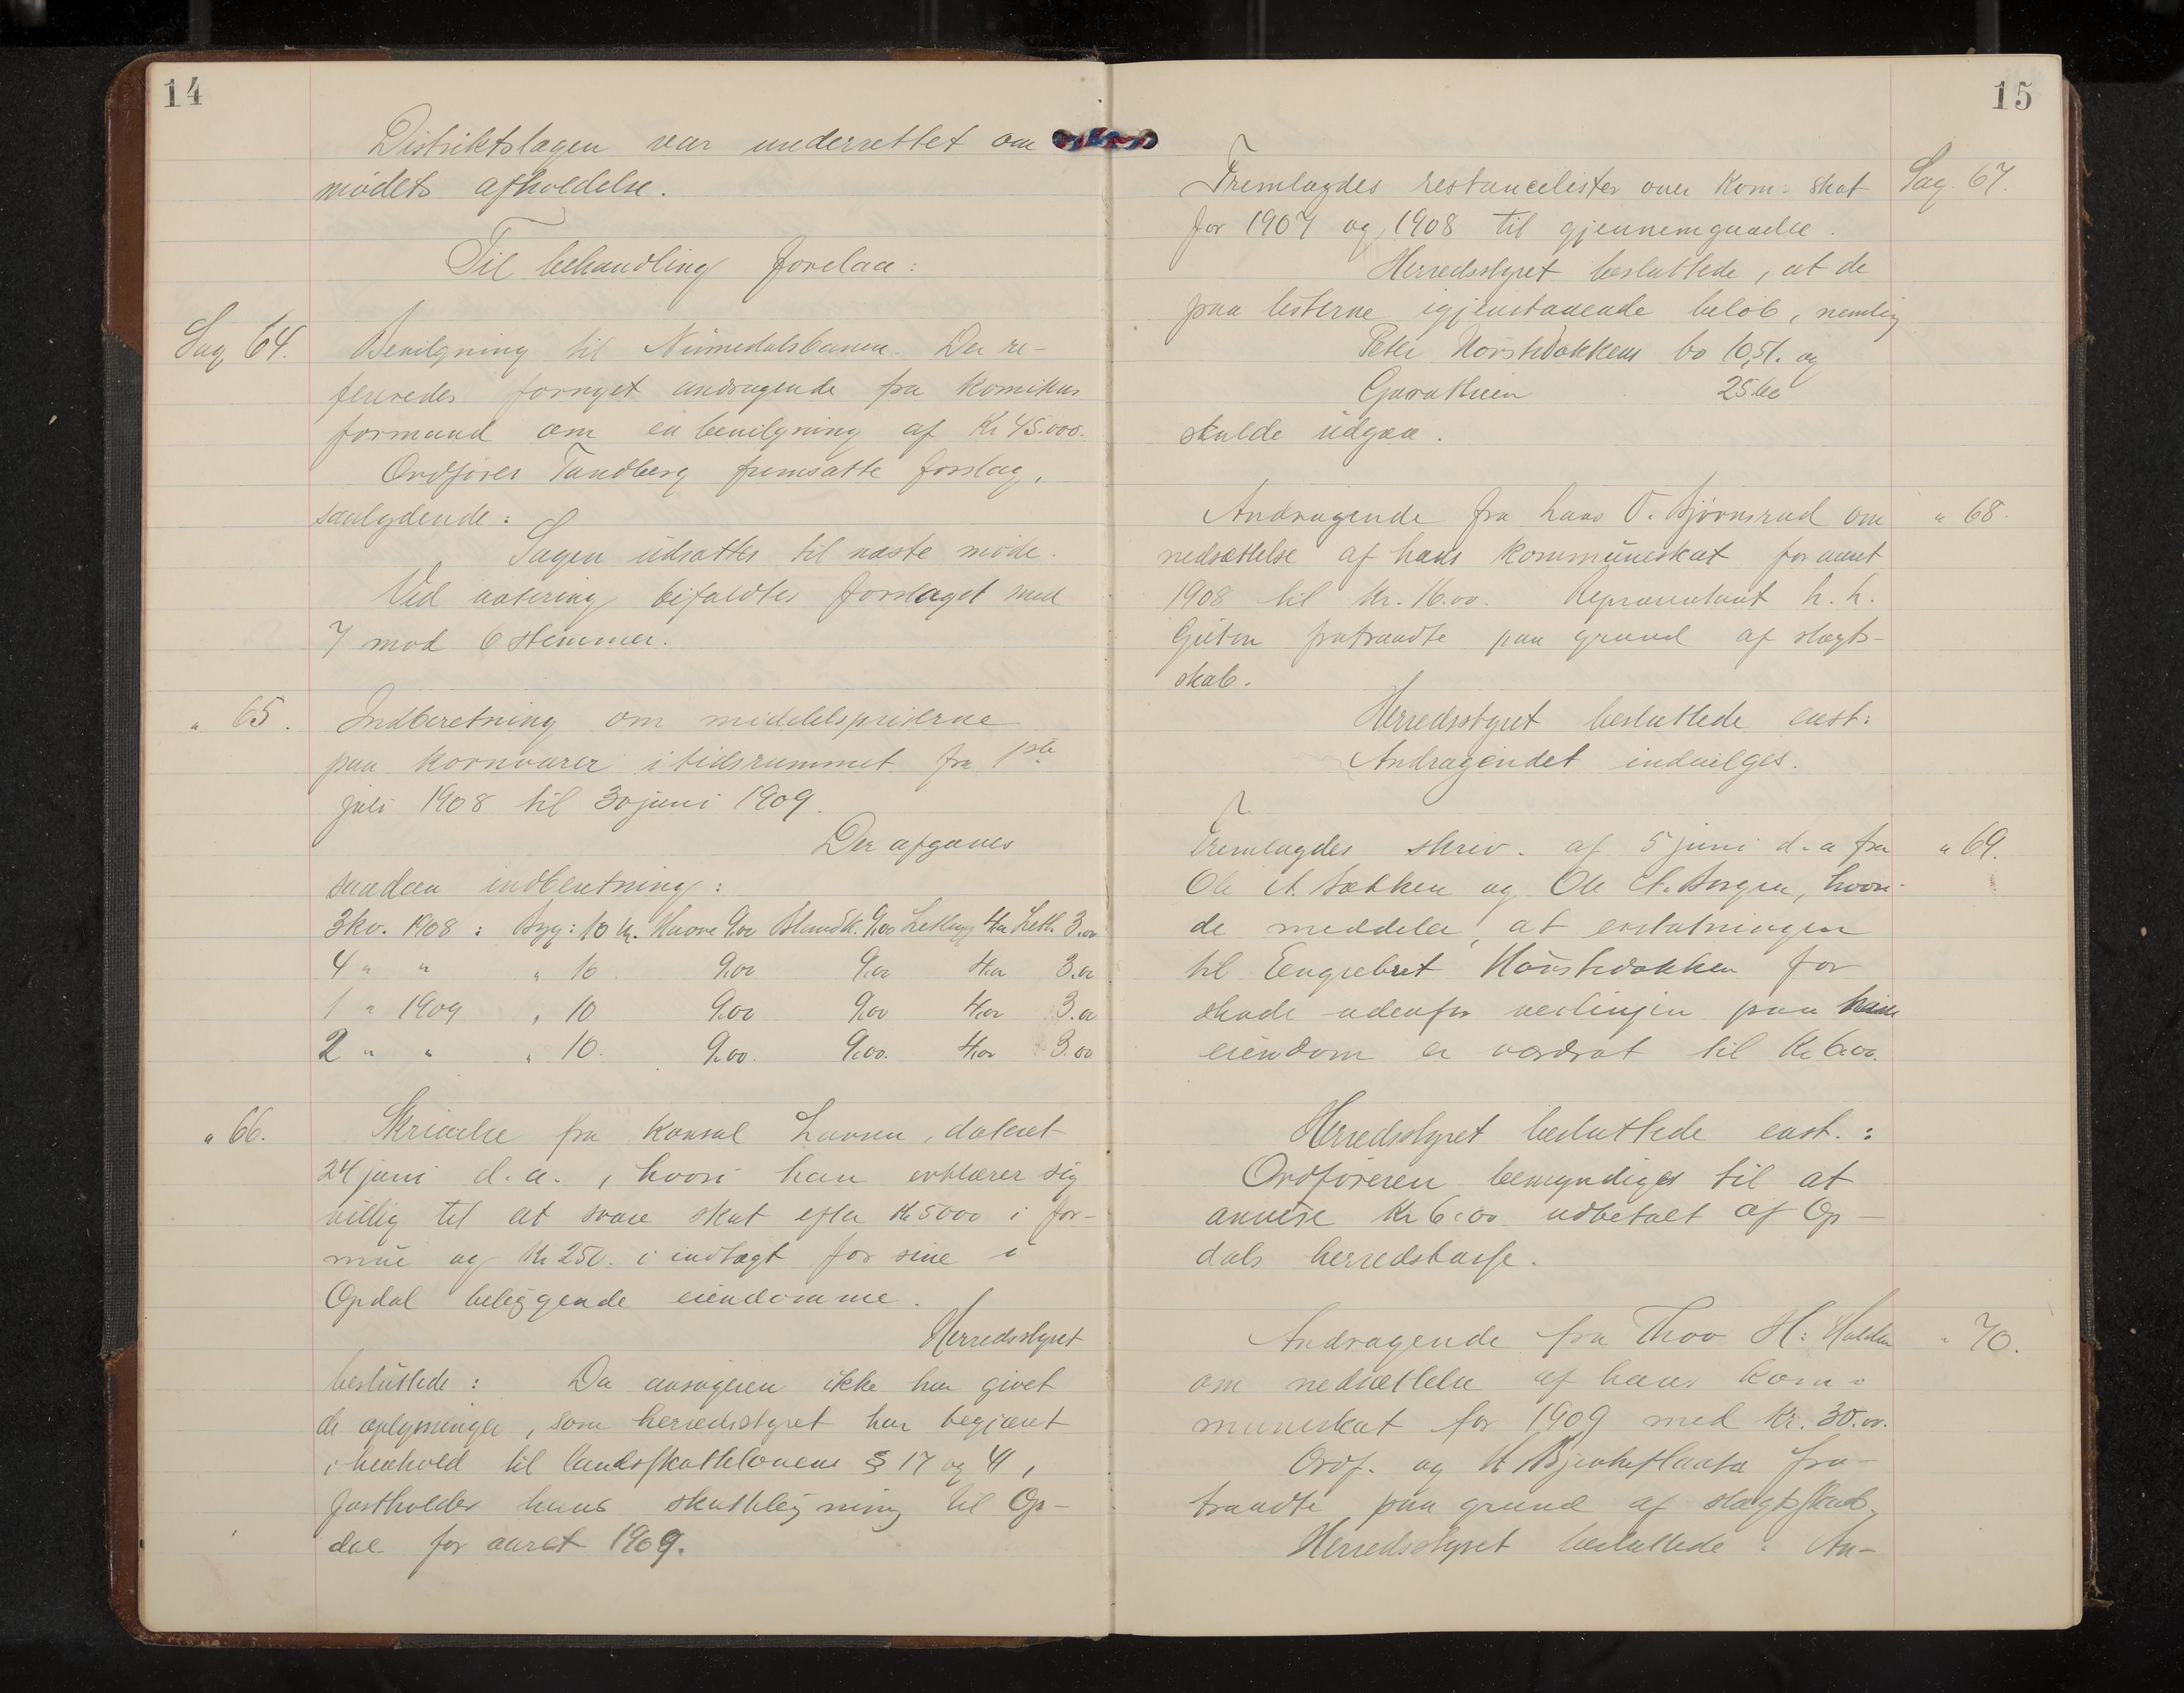 14
Distriktslægen var underrettet om
mødets afholdelse.
Til behandling forelaa:
Sag 64. Bevilgning til Numedalsbanen. Der re-
fereredes fornyet andragende fra komiteens
formand om en bevilgning af Kr 45.000.
Ordfører Tandberg fremsatte forslag,
saalydende:
Sagen udsættes til næste møde.
Ved votering bifaldtes forslaget med
7 mod 6 stemmer.
" 65. Indberetning om middelspriserne
paa kornvarer i tidsrummet fra 1ste
juli 1908 til 30 juni 1909.
Der afgaves
saadan indberetning:
3 kv. 1908: Byg: 10 kr. Havre 9.00 Blandk. 9.00 4.00 3.00
4 " " " 10 9.00 9.00 4.00 3.00
1 " 1909 " 10 9.00 9.00 4.00 3.00
2 " " " 10. 9.00. 9.00. 4.00 3.00
" 66. Skrivelse fra konsul Larsen, dateret
24 juni d.a., hvori han erklærer sig
villig til at svare skat efter Kr 5000 i for-
mue og Kr 250. i indtægt for sine i
Opdal beliggende eiendomme.
Herredsstyret
besluttede: Da ansøgeren ikke har givet
de oplysninger, som herredsstyret har begjæret
i henhold til landsskattelovens § 17 og 41,
fastholdes hans skatteligning til Op-
dal for aaret 1909.
15
Fremlagdes restancelister over kom. skat Sag. 67.
for 1907 og 1908 til gjennemgaaelse.
Herredsstyret besluttede, at de
paa listerne igjenstaaende beløb, nemlig
Peter bo 10,51. og
25.60
skulde udgaa.
Andragende fra Lars O. Bjørnsrud om " 68.
nedsættelse af hans kommuneskat for aaret
1908 til Kr. 16.00. Repræsentant h. h.
fratraadte paa grund af slægt-
skab.
Herredsstyret besluttede enst:
Andragendet indvilges.
Fremlagdes skriv. af 5 juni d.a fra " 69.
Ole A. Bakken og Ole A. Borgen, hvori
de meddeler, at erstatningen
til Engebret for
skade udenfor veilinjen paa hans
eiendom er værdsat til Kr 6.00.
Herredsstyret besluttede enst.:
Ordføreren bemyndiges til at
anvise Kr 6.00 udbetalt af Op-
dals herredskasse.
Andragende fra Thov H. Halden " 70.
om nedsættelse af hans kom-
muneskat for 1909 med Kr. 30.00.
Ordf. og fra-
traadte paa grund af slægtsskab.
Herredsstyret besluttede: An-